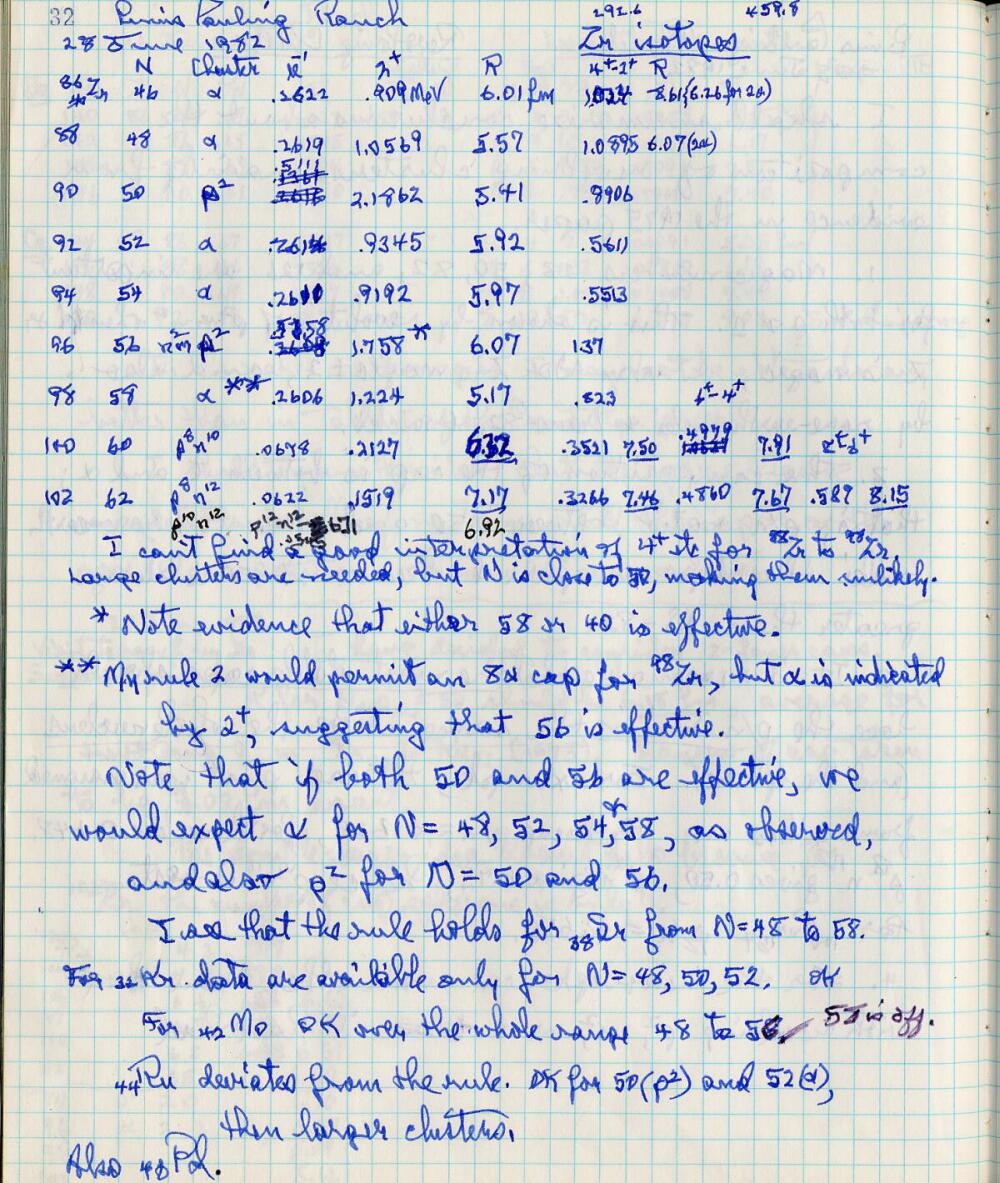 32 Linus Pauling Ranch 291.6 459.8
28 June 1982 Zr isotopes
N Cluster 2+ R 4+-2+ R
86 40 Zr 46 α .2622 .909 MeV 6.01 fm (6.26 for 2α)
88 48 α .2619 1.0569 5.57 1.0895 6.07(2α)
.5111
90 50 p2 2.1862 5.41 .8906
92 52 α .9345 5.92 .5611
94 54 α .2610 .9192 5.97 .5513
96 56 p2 1.758* 6.07 137
98 58 α** .2606 1.224 5.17 .823 6+-4+
100 60 p8n10 .0678 .2127 6.32 .3521 7.50 .4979 7.91
102 62 p8n12 .0622 .1519 7.17 .3266 7.46 .4860 7.67 .589 8.15
p10n12 p12n12 6.92
I can't find a good interpretation of 4+ etc for 88Zr to 98Zr.
Large clusters are needed, but N is close to 50, making them unlikely.
* Note evidence that either 58 or 40 is effective.
** My rule 2 would permit an 8α cap for 98Zr, but α is indicated
by 2+, suggesting that 56 is effective.
Note that if both 50 and 56 are effective, we
would expect α for N = 48, 52, 54,* 58, as observed,
and also p2 for N = 50 and 56.
I see that the rule holds for 38Sr from N=48 to 58.
For Kr data are available only for N=48, 50, 52. OK
For 42Mo OK over the whole range 48 to 56 is off.
44Ru deviates from the rule. OK for 50(p2) and 52(α),
then larger clusters.
Also Pd.